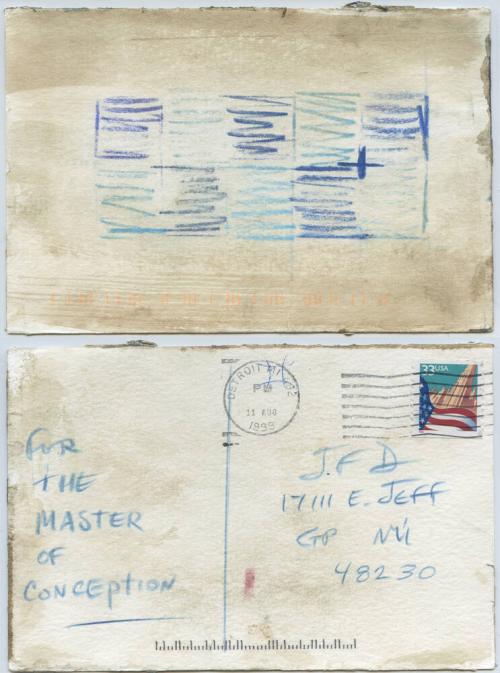 FOR
THE
MASTER
OF
CONCEPTION
DETROIT MI 482
PM
11 AUG
1999
33USA
J.F D
17111 E. JEFF
GP MI
48230